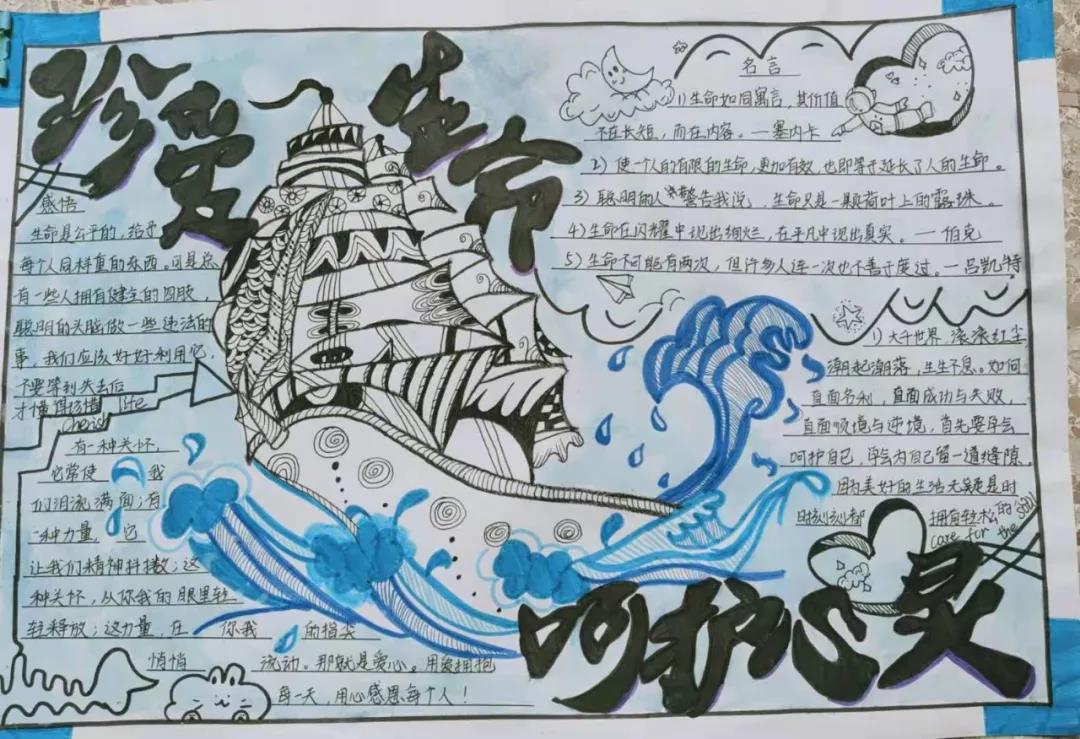 珍爱生命
感悟
生命是公平的，给予
每个人同样重的东西。可是总
有一些人拥有健全的四肢，
聪明的头脑做一些违法的
事，我们应该好好利用它，
不要等到失去后
才懂得珍惜 life
cherish
有一种关怀，
它常使 我
们泪流满面；有
一种力量， 它
让我们精神抖擞；这
种关怀，从你我的眼里轻
轻释放；这力量，在 你我 的指尖
悄悄 流动。那就是爱心。用爱拥抱
每一天，用心感恩每个人！
名言
1）生命如同寓言，其价值
不在长短，而在内容。—塞内卡
2）使一个人的有限的生命，更加有效，也即等于延长了人的生命。
3）聪明的人警告我说，生命只是一颗荷叶上的露珠。
4）生命在闪耀中现出绚烂，在平凡中现出真实。—伯克
5）生命不可能有两次，但许多人连一次也不善于度过。—吕凯特
1）大千世界，滚滚红尘
潮起潮落，生生不息。如何
直面名利，直面成功与失败，
直面顺境与逆境，首先要学会
呵护自己，学会为自己留一道缝隙。
因为美好的生活无疑是时
时刻刻都 拥有轻松的
care for the soul
呵护心灵